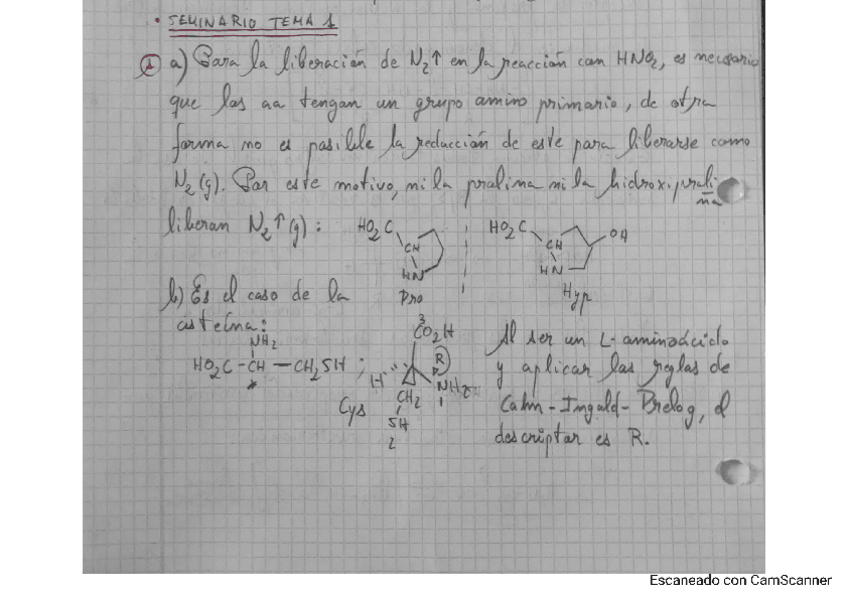 • SEMINARIO TEMA 1
① a) Para la liberación de N₂↑ en la reacción con HNO₂, es necesario
que los aa tengan un grupo amino primario, de otra
forma no es posible la reducción de este para liberarse como
N₂(g). Por este motivo, ni la prolina ni la hidroxiproli
na
liberan N₂↑(g):
HO₂C CH HN Pro
HO₂C CH HN OH Hyp
b) Es el caso de la
cisteína:
NH₂
HO₂C-CH-CH₂SH ;
*
3
CO₂H
R
H NH₂
1
CH₂
SH
2
Cys
Al ser un L-aminoácido
y aplicar las reglas de
Cahn-Ingold-Prelog, el
descriptor es R.
Escaneado con CamScanner